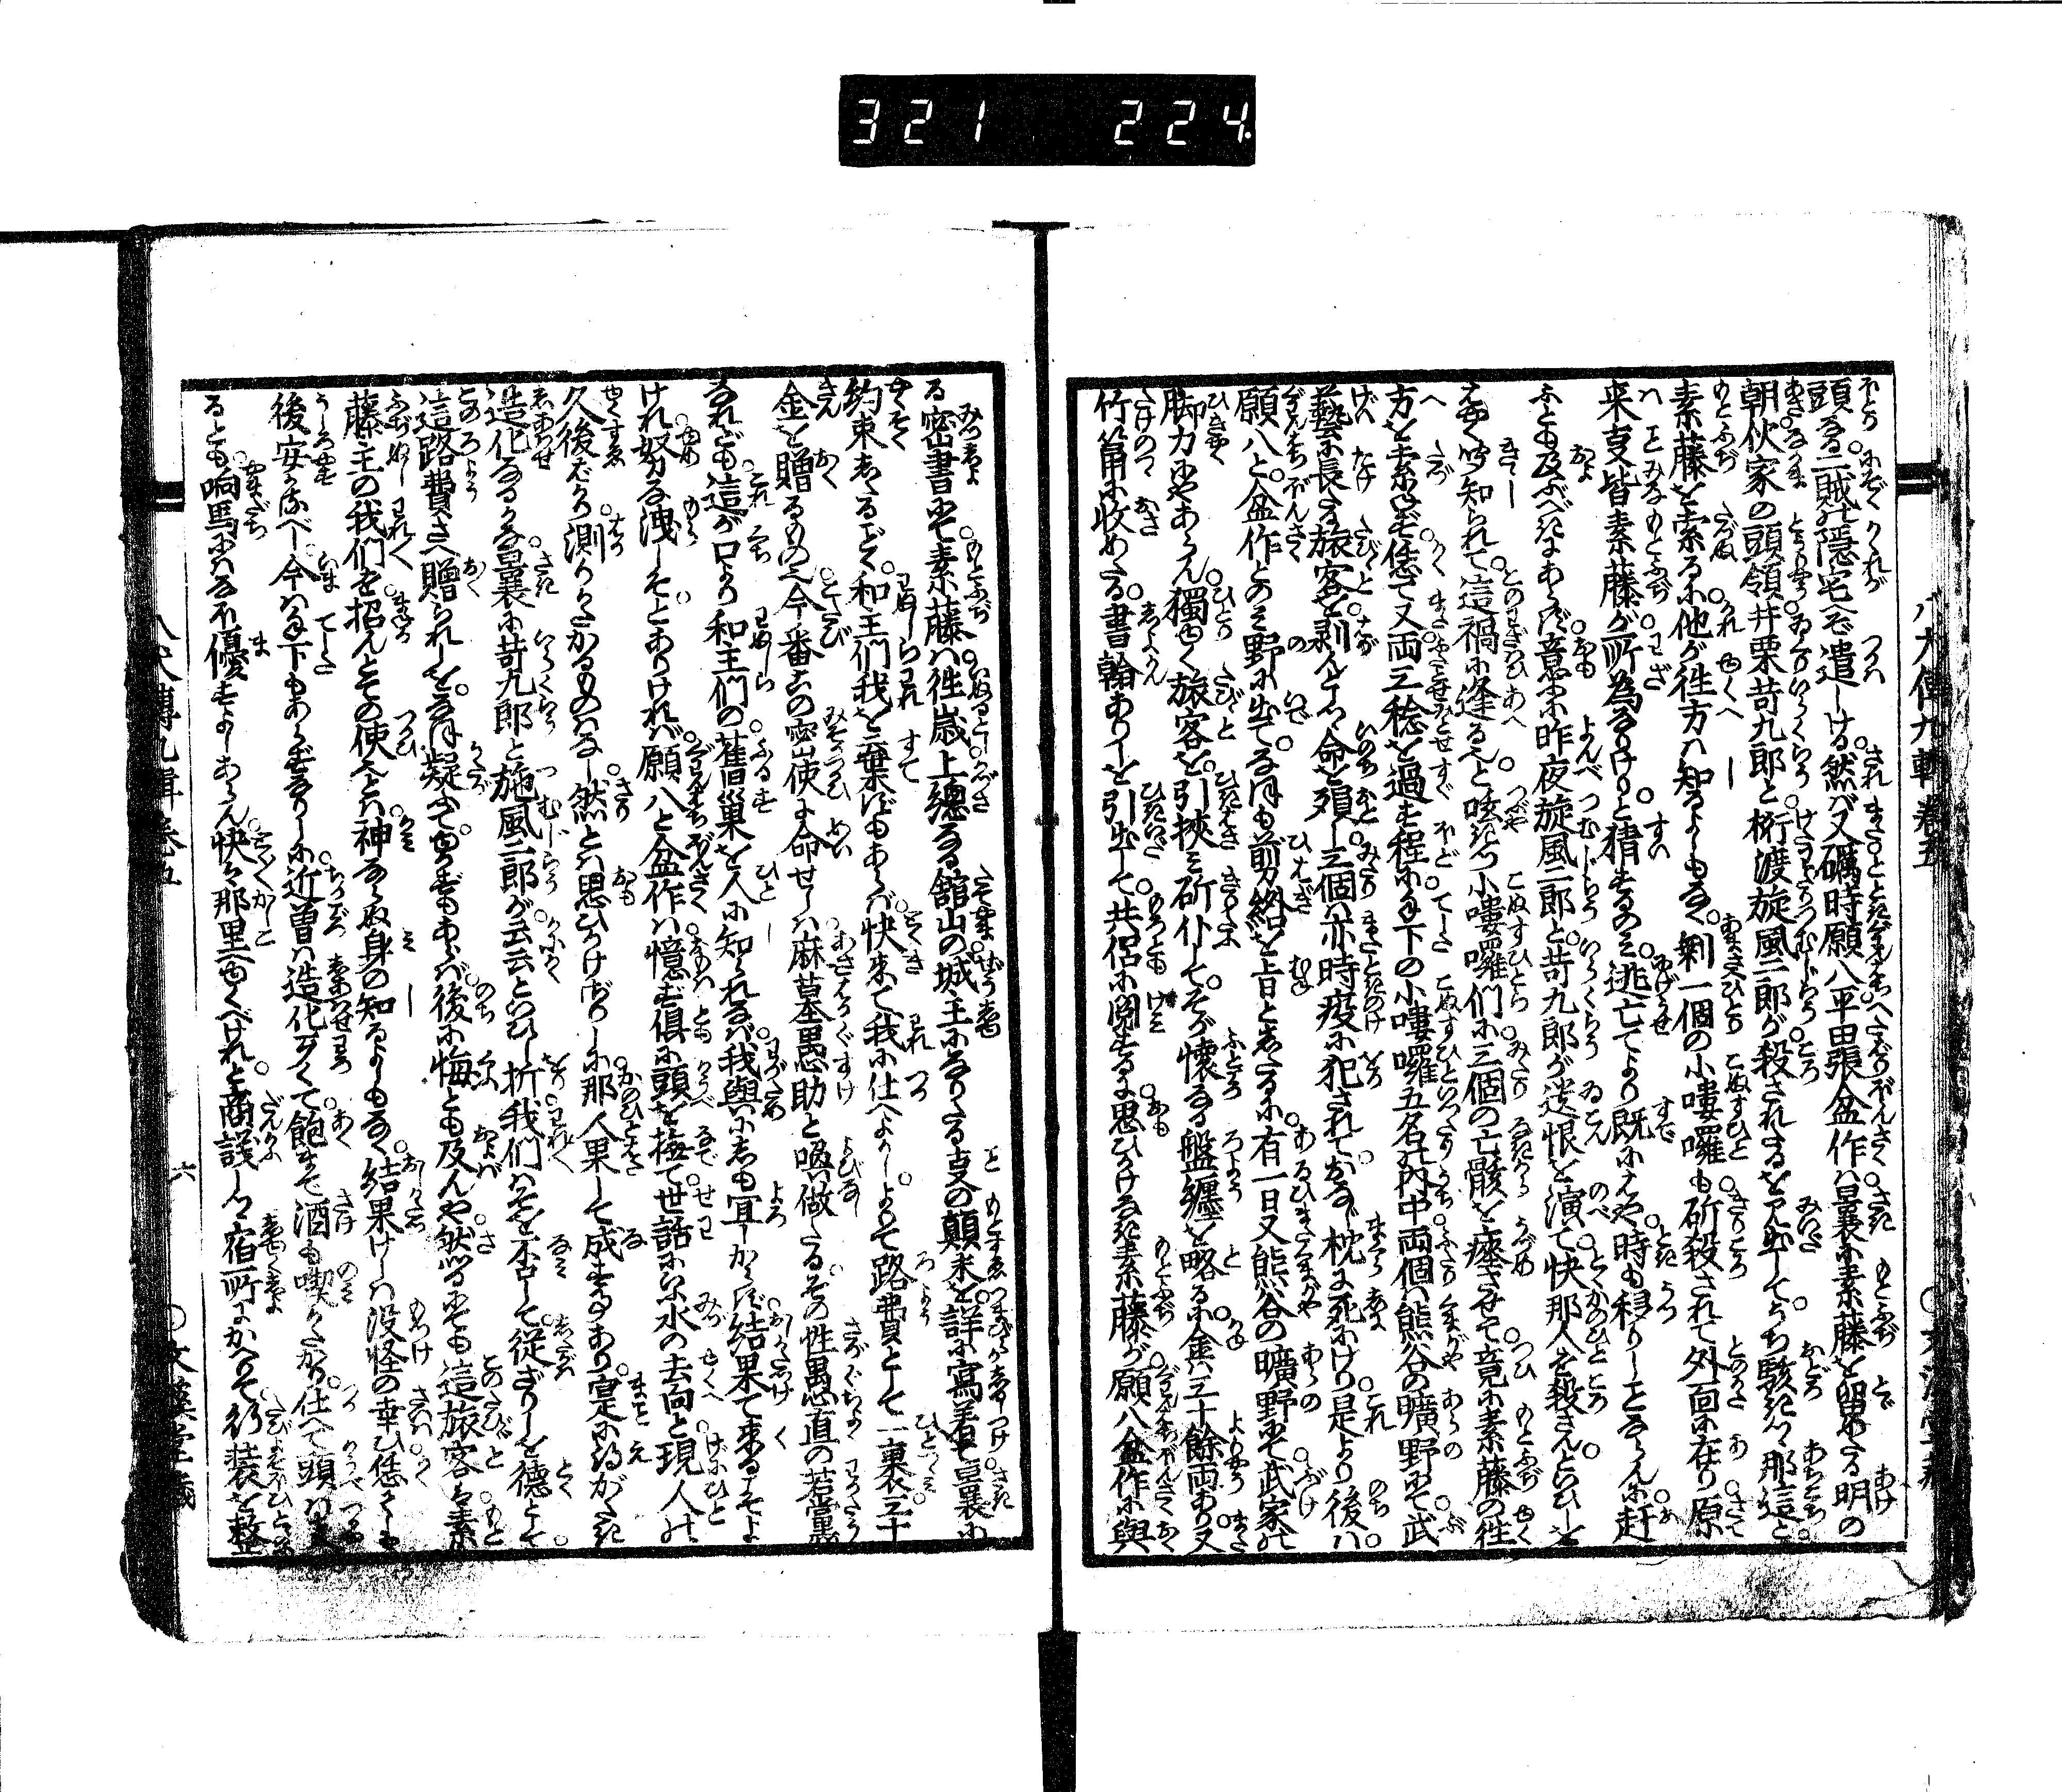 321 224
頭なる二賊の隠宅へぞ遣しける然ば又礪時願八平田張盆作は曩に素藤を留めたる明の
朝伙家の頭領井栗苛九郎と桁渡旋風二郎が殺されたるを見出してうち駭きつゝ那這と
素藤を索るに他が徃方は知るよしもなく剰一個の小嘍囉も斫殺されて外面に在り原
来叓皆素藤が所為なりけりと猜するのみ逃亡てより既にはや時も移りしことならんに赶
ふとも及ぶべきにあらず意ふに昨夜旋風二郎と苛九郎が遺恨を演て快那人を殺さんといひしを
はやく聞知られて這禍に逢るならんと呟きつゝ小嘍囉們に三個の亡骸を瘞させて竟に素藤の徃
方を索ねず恁て又両三稔を過す程に手下の小嘍囉五名の内中両個は熊谷の曠野にて武
藝に長たる旅客を剥んとしつゝ命を殞し三個は亦時疫に犯されておなじ枕に死にけり是より後は
願八と盆作とのみ野に出てなほも剪絡を旨としたるに有一日又熊谷の曠野にて武家の
脚力にやあらん獨ゆく旅客を引挾み斫仆してそが懐なる盤纏を略るに金は三十餘両あり又
竹筩に收めたる書翰ありしを引出して共侶に閲するに思ひかけなき素藤が願八盆作に與
る密書にて素藤は徃歳上總なる舘山の城主になりたる叓の顛末を詳に寫着て曩に
約束したるごとく和主們我を棄ずもあらば快来て我に仕へよかしよりて路費として一裹三十
金を贈るものへ今番この密使に命せしは麻墓愚助と喚做したるその性愚直の若黨
なれども這が口より和主們の舊巣を人に知られなば我與にしも宜しからず結果て来るこそよ
けれ努な洩しそとありければ願八と盆作は憶ず倶に頭を撫て世話にいふ水の去向と現人の
久後ばかり測りかたかるものはなし然とは思ひかけざりしに那人果して成すことあり寔に得がたき
造化なるかな曩に苛九郎と旋風二郎が云云といひし折我們はそを否して従ざりしを徳として
這路費さへ贈られしをなほ疑ふてゆかずもあらば後に悔とも及んや然るにても這旅客を素
藤主の我們を招んとての使とは神ならぬ身の知るよしもなく結果けしは没怪の幸ひ恁くも
後安かるべし今は手下もあらずなりしに近曽は造化歹くて飽まで酒も喫かたかり仕へて頭は
るとも响馬にはなほ優すよしあらん快く那里へゆくべけれと商議しつゝ宿所にかへりて行装を整
八犬傳九輯 卷五
六
文溪堂藏